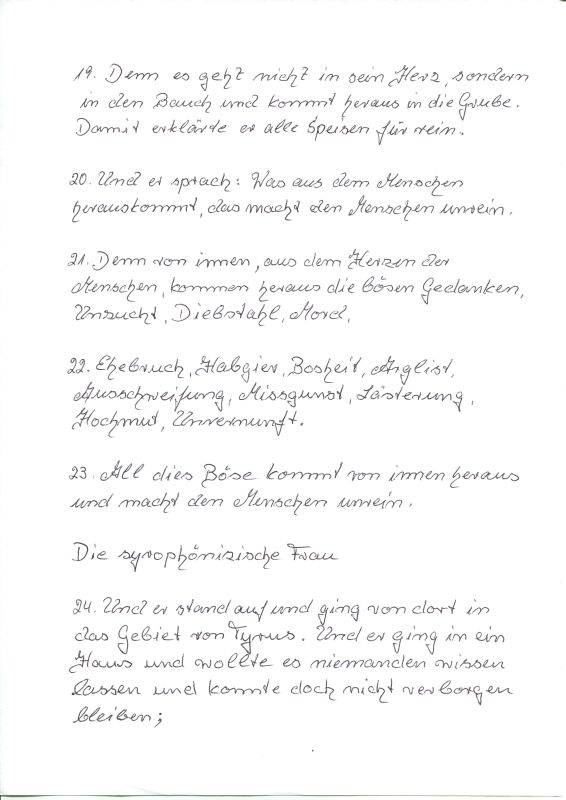 19. Denn es geht nicht in sein Herz, sondern
in den Bauch und kommt heraus in die Grube.
Damit erklärte er alle Speisen für rein.
20. Und er sprach: Was aus dem Menschen
herauskommt, das macht den Menschen unrein.
21. Denn von innen, aus dem Herzen der
Menschen, kommen heraus die bösen Gedanken,
Unzucht, Diebstahl, Mord,
22. Ehebruch, Habgier, Bosheit, Arglist,
Ausschweifung, Missgunst, Lästerung,
Hochmut, Unvernunft.
23. All dies Böse kommt von innen heraus
und macht den Menschen unrein.
Die syrophönizische Frau
24. Und er stand auf und ging von dort in
das Gebiet von Tyrus. Und er ging in ein
Haus und wollte es niemanden wissen
lassen und konnte doch nicht verborgen
bleiben;